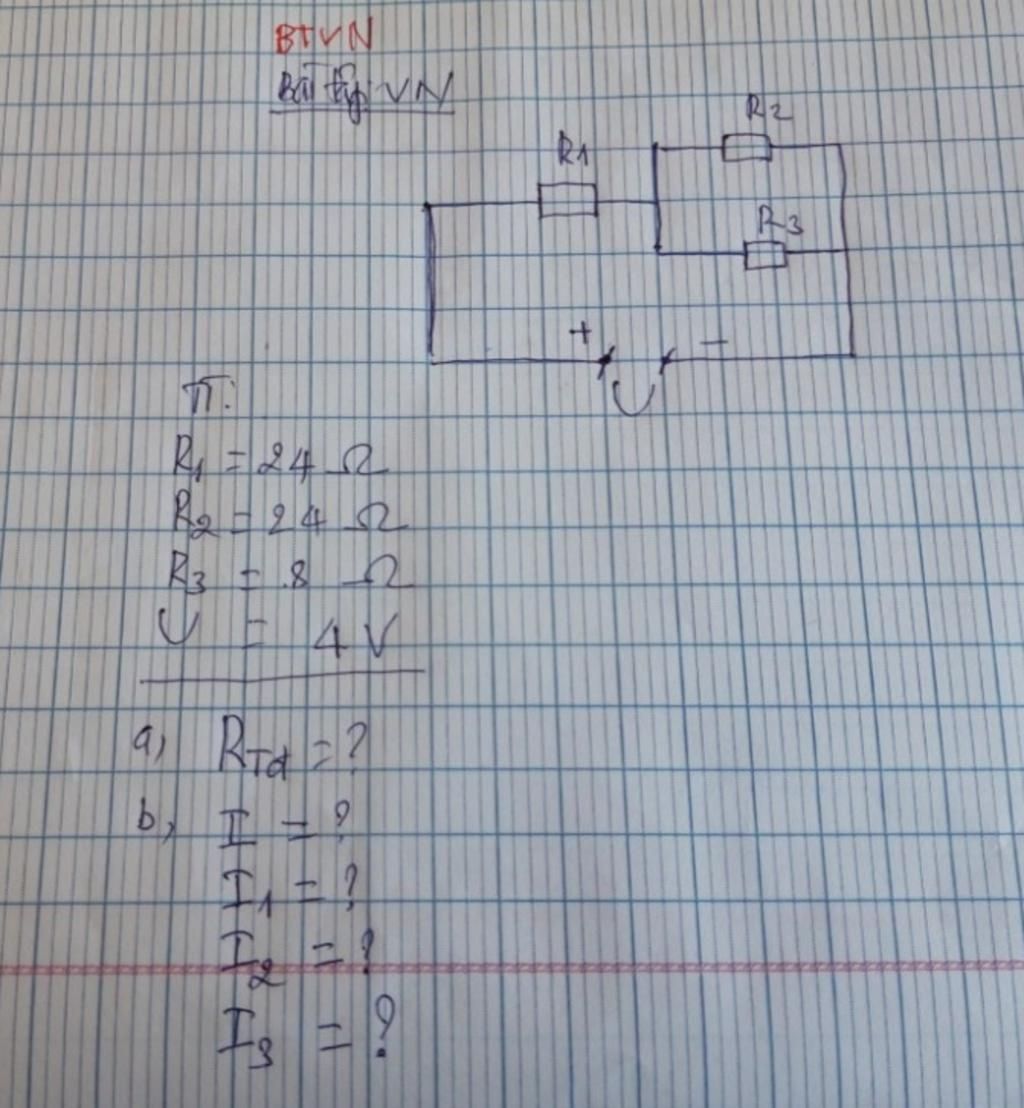 BTVN
Bài tập VN
R1
R2
R3
+ −
U
TT:
R1 = 24 Ω
R2 = 24 Ω
R3 = 8 Ω
U = 4 V
a, RTđ = ?
b, I = ?
I1 = ?
I2 = ?
I3 = ?